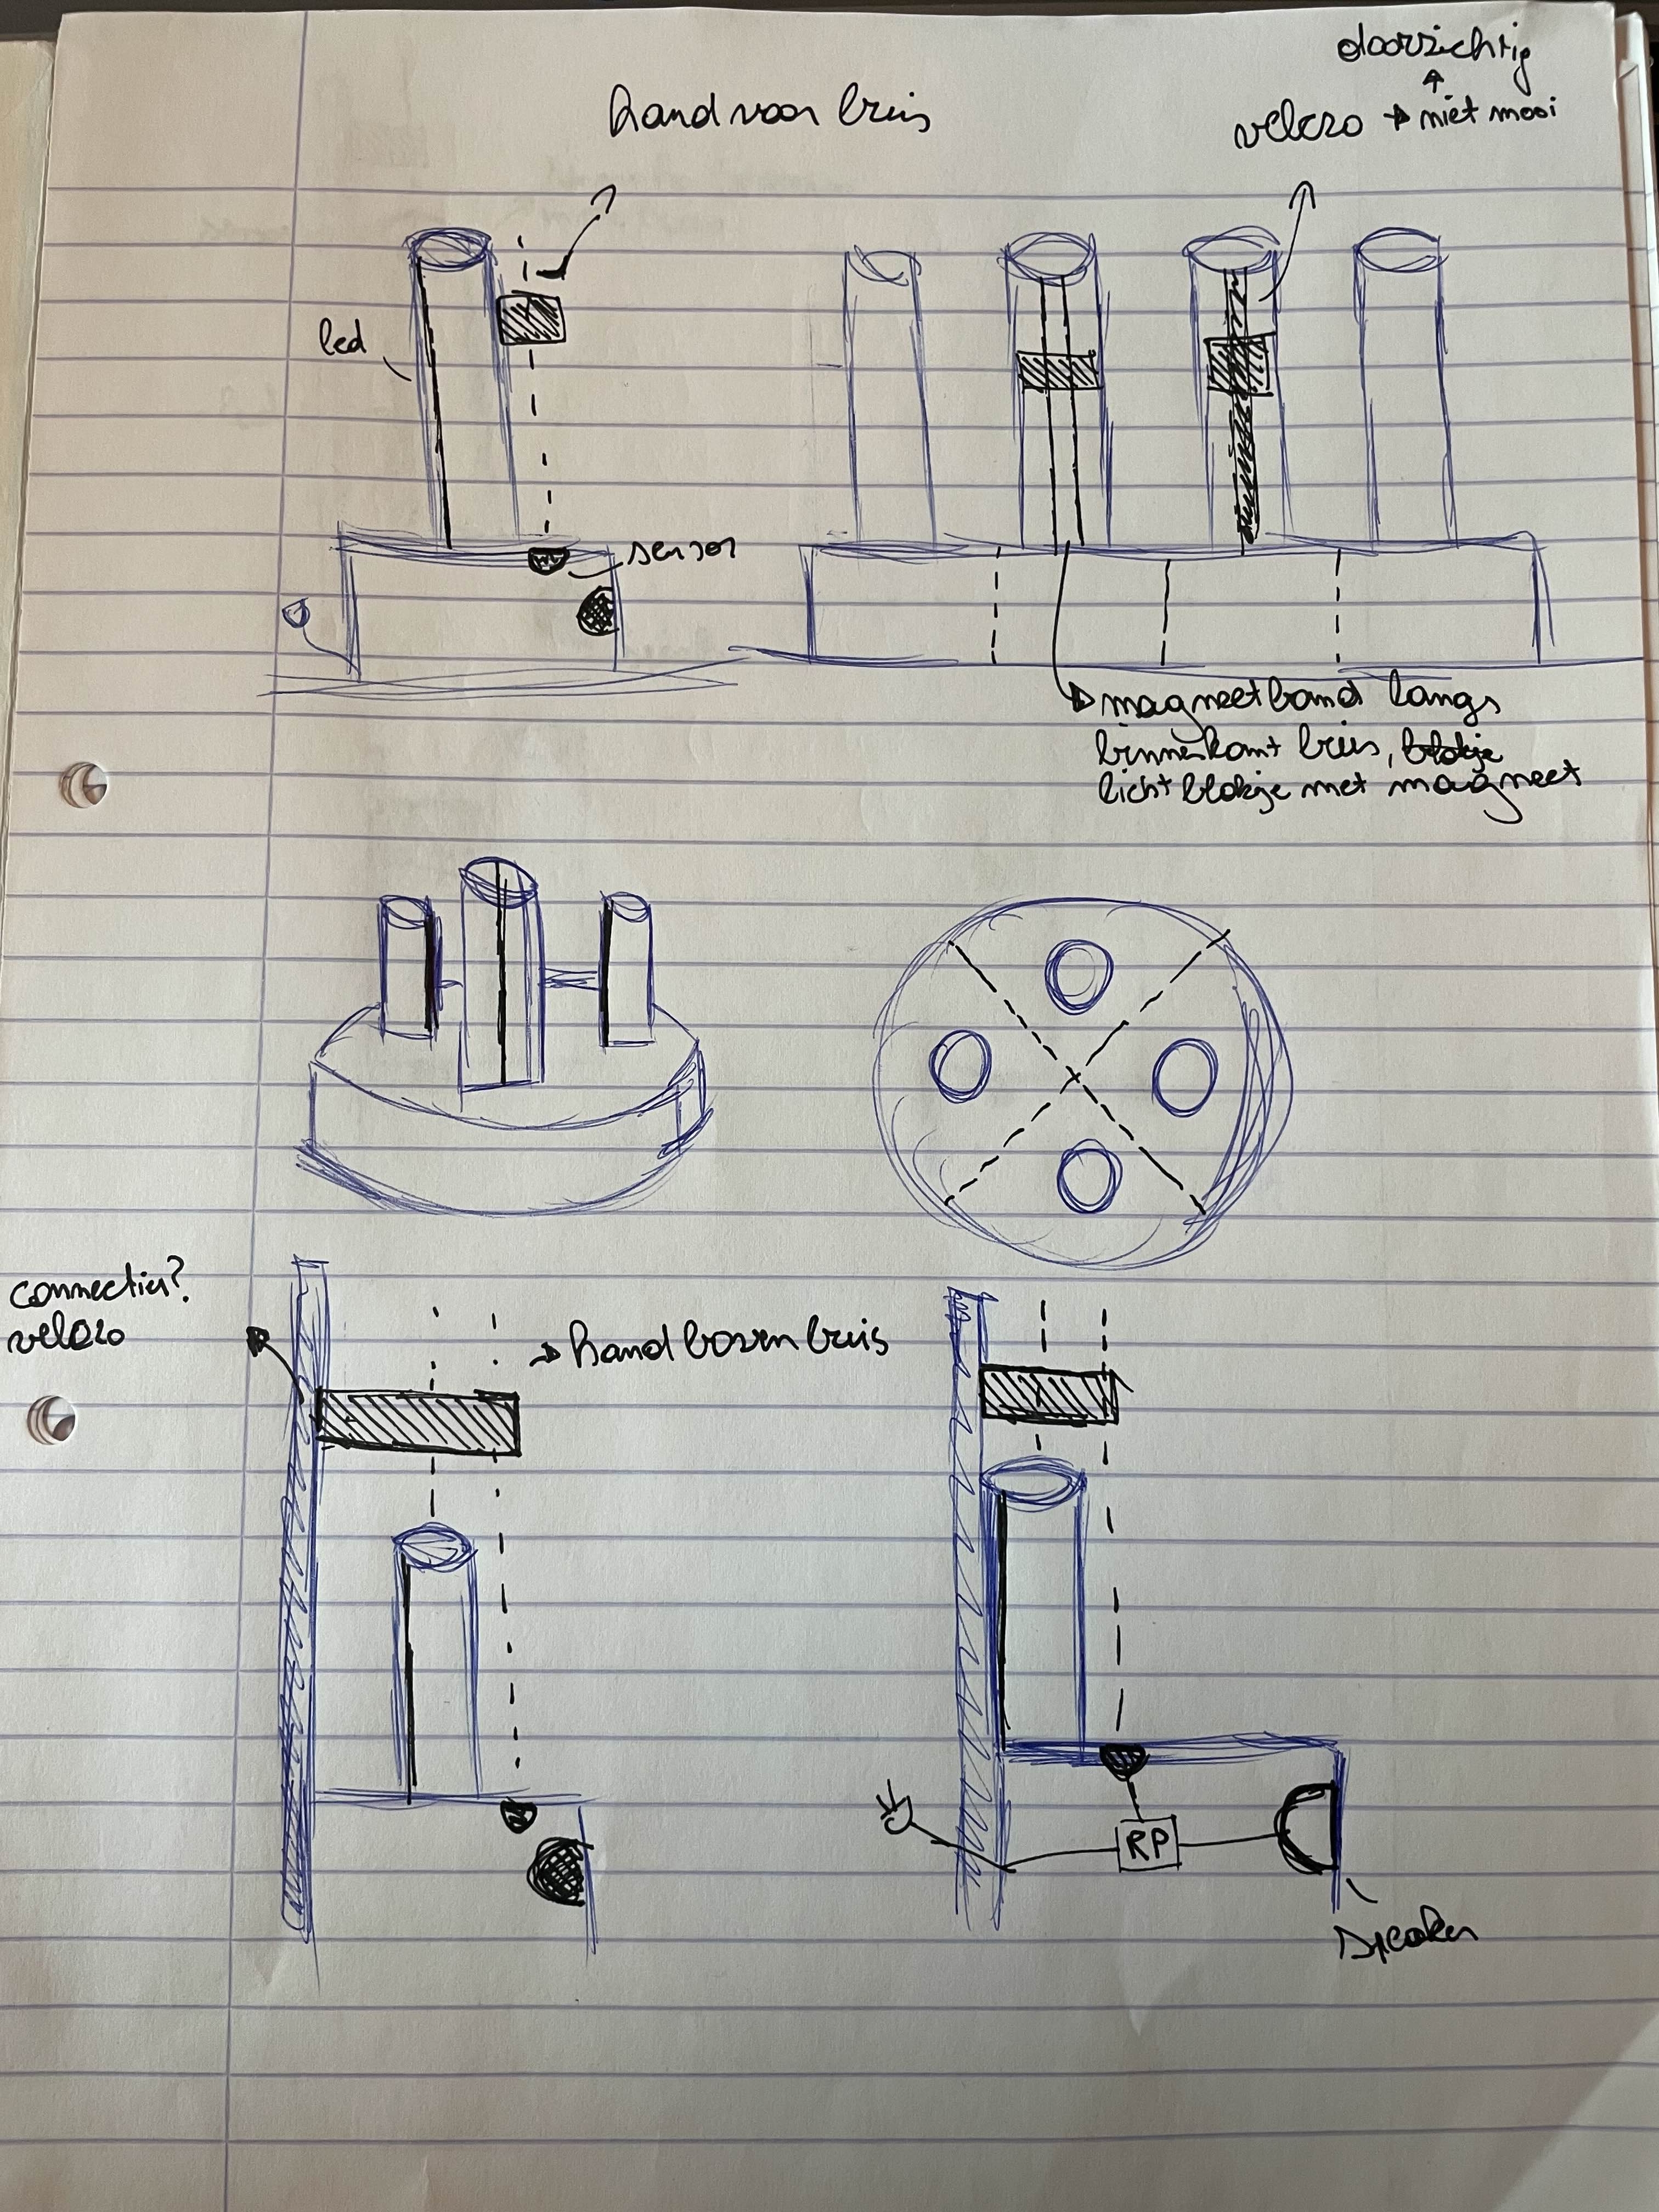 doorzichtig
hand voor buis
velcro → niet mooi
led
sensor
magneetband langs
binnenkant buis, blokje
licht blokje met magneet
connectie?
velcro
→ hand boven buis
RP
speaker